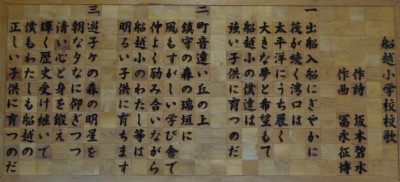 船越小学校校歌
作詩 坂本碧水
作曲 冨永征博
一 出船入船にぎやかに
筏が続く湾口は
太平洋にうち展く
大きな夢と希望もて
船越小の僕達は
強い子供に育つのだ
二 町音遠い丘の上
鎮守の森の瑞垣に
風もすがしい学び舎で
仲よく励み合いながら
船越小のわたし等は
明るい子供に育ちます
三 遊子ケの森の明星を
朝な夕なに仰ぎつつ
清い心と身を鍛え
輝く歴史受け継いで
僕もわたしも船越の
正しい子供に育つのだ